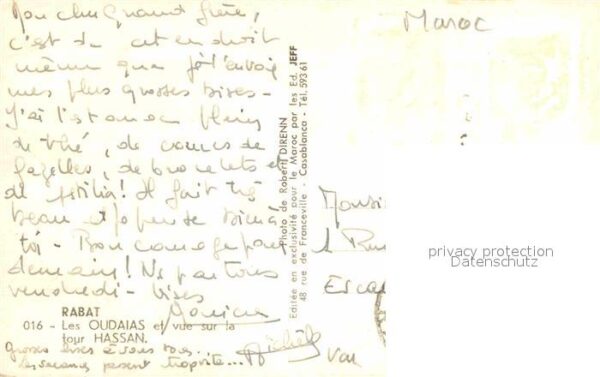 Mon cher Grand frère,
c'est de cet endroit
même que je t'envoie
mes plus grosses bises -
J'ai l'estomac plein
de thé, de cornes de
gazelles, de brochettes et
de ! Il fait très
beau et je pense bien à
toi - Bon courage pour
demain! Ns partons
vendredi - bises
Monica
RABAT
016 - Les OUDAIAS et vue sur la
tour HASSAN.
Grosses bises à vous tous.
Les vacances passent trop vite...
Photo de Robert DIRENN
Editée en exclusivité pour le Maroc par les Ed. JEFF
48 rue de Franceville - Casablanca - Tél. 593 61
Maroc
Monsi
privacy protection
Datenschutz
Var